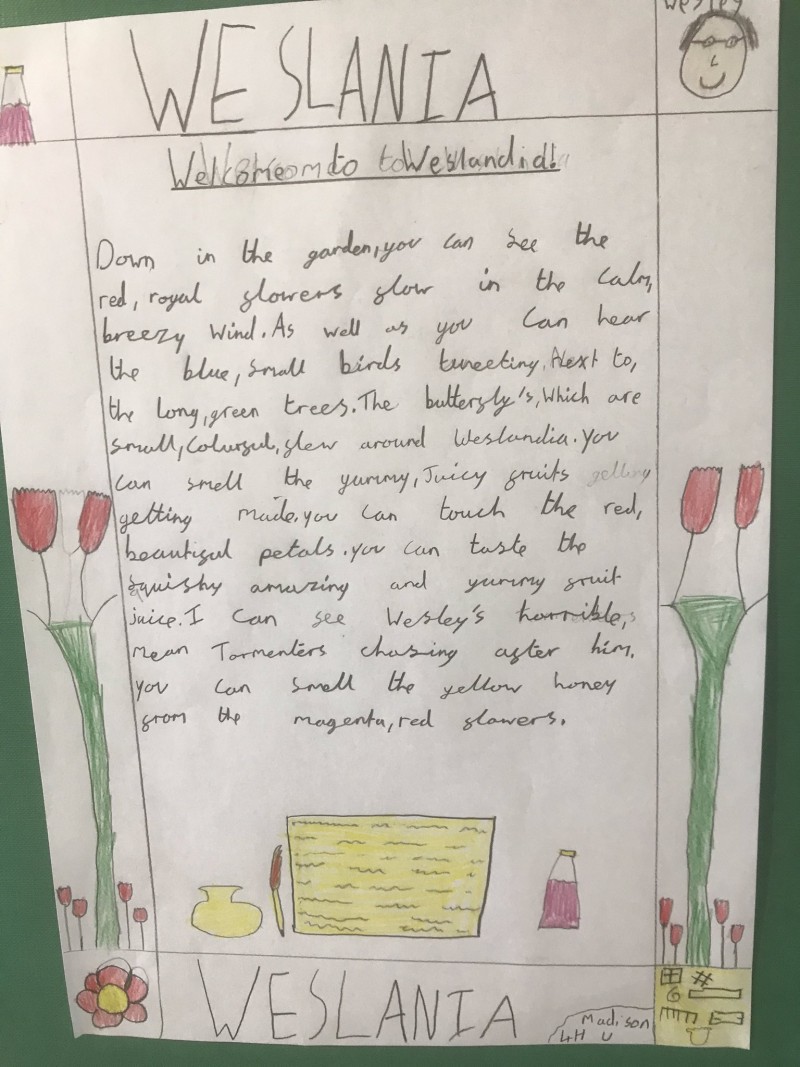 Wesley
WESLANIA
Welcome to Weslandia!
Down in the garden, you can see the
red, royal flowers flow in the calm,
breezy wind. As well as you can hear
the blue, small birds tweeting. Next to,
the long, green trees. The butterfly's, which are
small, colurful, flew around Weslandia. you
can smell the yummy, Juicy fruits
getting made. you can touch the red,
beautiful petals. you can taste the
squishy amazing and yummy fruit
juice. I can see Wesley's horrible,
mean Tormenters chasing after him.
you can smell the yellow honey
from the magenta, red flowers.
WESLANIA
Madison
4H U